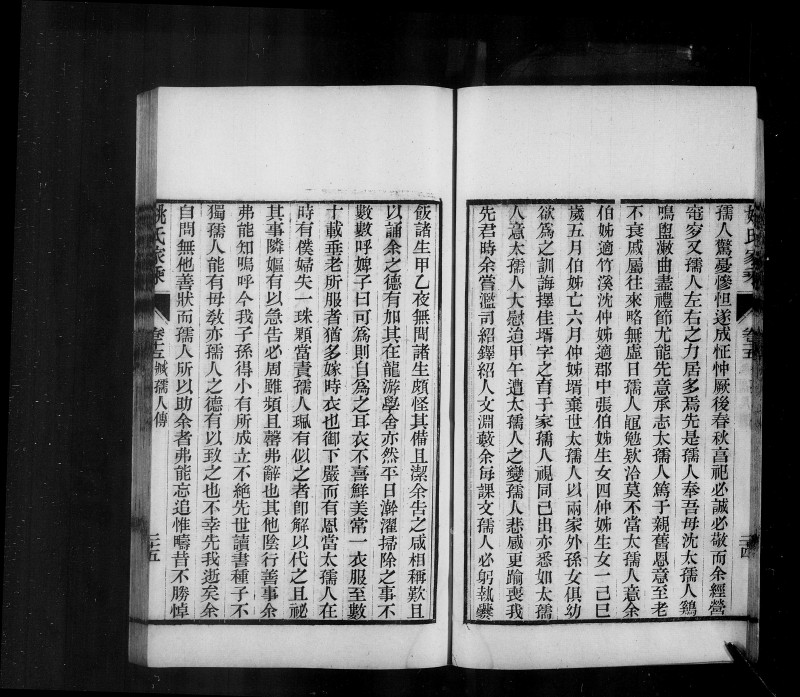 孺人驚憂慘怛遂成怔忡厥後春秋亯祀必誠必敬而余經營
窀穸又孺人左右之力居多焉先是孺人奉吾母沈太孺人鷄
鳴盥漱曲盡禮節尤能先意承志太孺人篤于親舊恩意至老
不衰戚屬往來略無虛日孺人黽勉欵洽莫不當太孺人意余
伯姊適竹溪沈仲姊適郡中張伯姊生女四仲姊生女一己巳
歲五月伯姊亡六月仲姊壻棄世太孺人以兩家外孫女俱幼
欲爲之訓誨擇佳壻字之育于家孺人視同己出亦悉如太孺
人意太孺人大慰迨甲午遭太孺人之變孺人悲慼更踰喪我
先君時余嘗濫司紹鐸紹人文淵藪余每課文孺人必躬執爨
姚氏家乘
卷十五
三十四
飯諸生甲乙夜無間諸生頗怪其備且潔余告之咸相稱歎且
以誦余之德有加其在龍游學舍亦然平日澣濯掃除之事不
數數呼婢子曰可爲則自爲之耳衣不喜鮮美常一衣服至數
十載垂老所服者猶多嫁時衣也御下嚴而有恩當太孺人在
時有僕婦失一珠顆當責孺人珮有似之者卽解以代之且祕
其事隣嫗有以急告必周雖頻且罄弗辭也其他陰行善事余
弗能知嗚呼今我子孫得小有所成立不絕先世讀書種子不
獨孺人能有母敎亦孺人之德有以致之也不幸先我逝矣余
自問無他善狀而孺人所以助余者弗能忘追惟疇昔不勝悼
姚氏家乘
卷十五
孺人傳
三十五